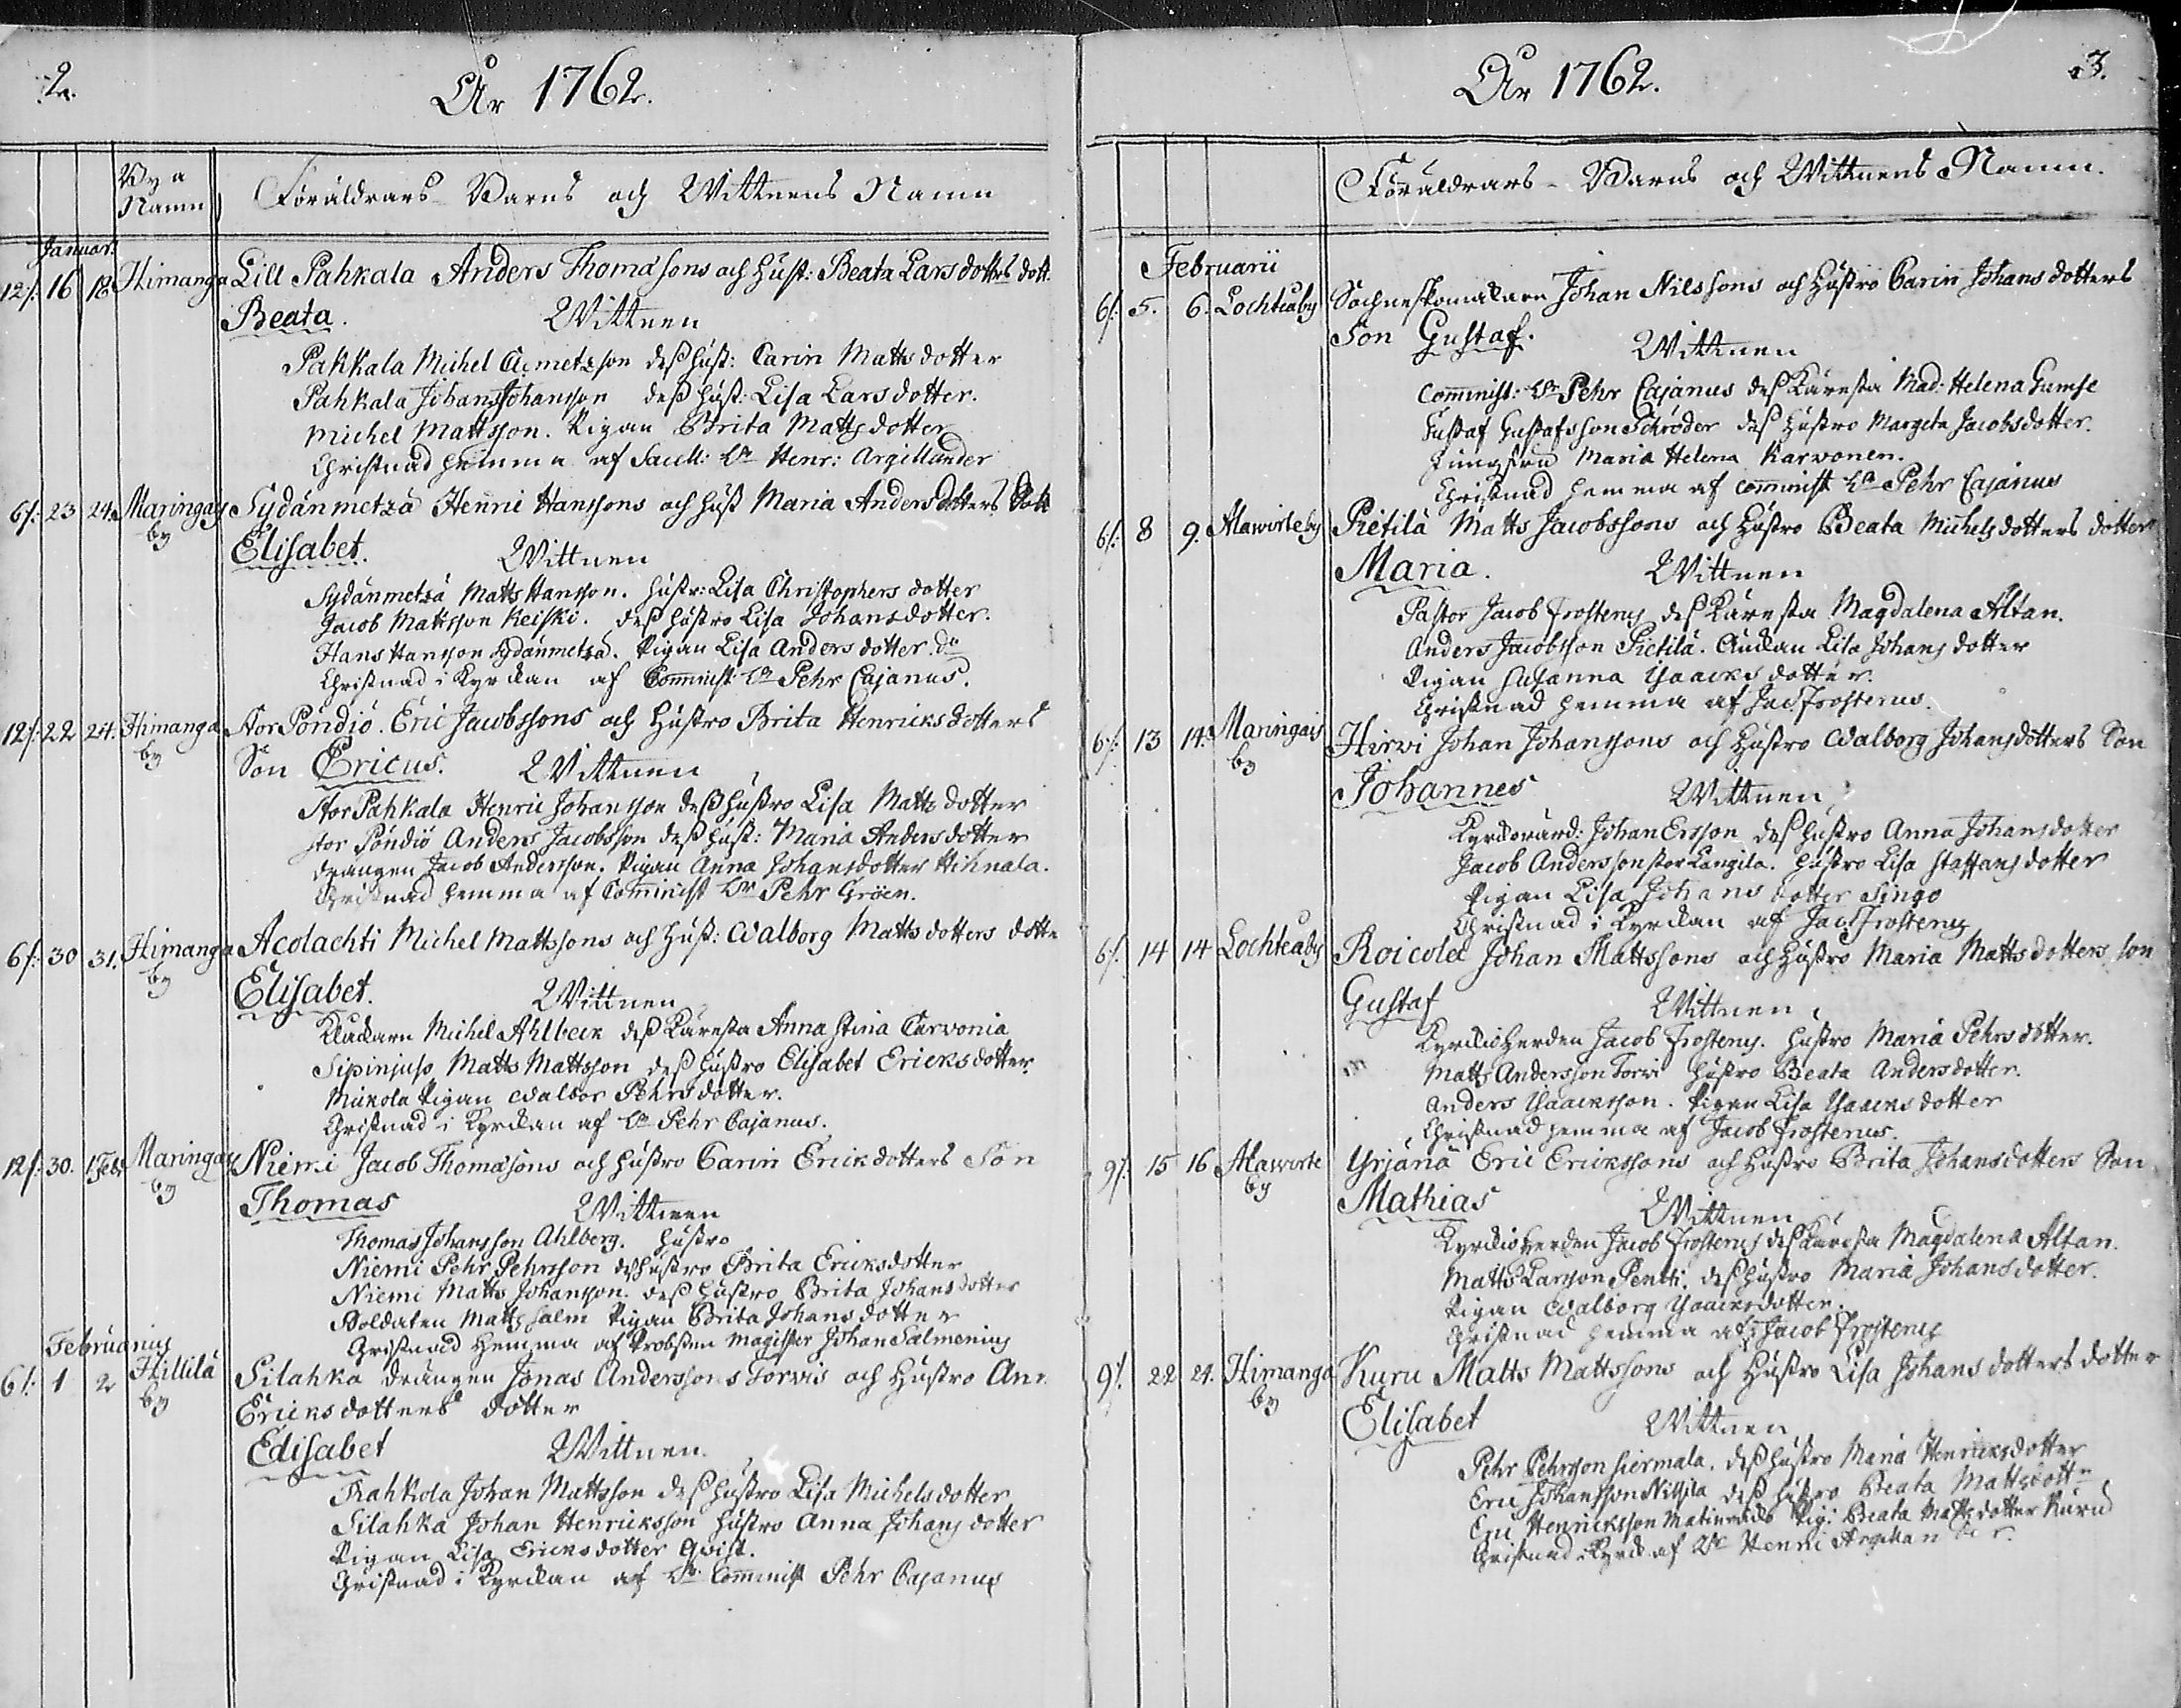 2.
År 1762.
Bya Namn
Föräldrars Barns och Wittnens Namn
Januar:
12/: 16 18 Himanga Lill Pahkala Anders Thomasons och Hust: Beata Larsdotters dott.
Beata. Wittnen
Pahkala Michel Acmetzson dess Hust: Carin Matts dotter
Pahkala Johan Johansson dess Hust: Lisa Lars dotter.
Michel Mattsson. Pigan Brita Matts dotter
Christnad hemma af Sacell: Hr Henr: Argillander
6/: 23 24. Maringais by Sydänmetzä Henric Hanssons och Hust Maria Anders dotters Dott
Elisabet. Wittnen
Sydänmetzä Matts Hansson. hustr: Lisa Christophers dotter
Jacob Mattsson Keiski. dess hustro Lisa Johansdotter.
Hans Hansson Sydänmetzä. Pigan Lisa Anders dotter. do
Christnad i Kyrckan af Comminist: Hr Pehr Cajanus.
12/: 22 24. Himanga by Stor Pöndiö. Eric Jacobssons och Hustro Brita Henricks dotters
Son Ericus. Wittnen
Stor Pahkala Henric Johansson dess hustro Lisa Matts dotter
stor Pöndiö Anders Jacobsson dess hust: Maria Anders dotter
drängen Jacob Andersson. Pigan Anna Johansdotter Hihnala.
Christnad hemma af Comminist Hr Pehr Gröen.
6/: 30 31. Himanga by Acolachti Michel Mattssons och Hust: Walborg Matts dotters dotte
Elisabet. Wittnen
Klåckarn Michel Ahlbeck dess Käresta Anna Stina Carvonia
Sipinjuso Matts Mattsson dess hustro Elisabet Ericks dotter
Mickola Pigan Walbor Pehrs dotter.
Christnad i Kyrckan af Hr Pehr Cajanus.
12/: 30. 1. Feb: Maringais by Niemi Jacob Thomasons och hustro Carin Erickdotters Son
Thomas Wittnen
Thomas Johansson Ahlberg. hustro
Niemi Pehr Pehrsson des hustro Brita Ericksdotter
Niemi Matts Johansson. dess hustro Brita Johans dotter
Soldaten Matts Salm Pigan Brita Johans dotter
Christnad Hemma af Probsten Magister Johan Salmenius
Februarius
6/: 1 2 Hillilä by Silahka drängen Jonas Anderssons Torvis och Hustro Ann
Ericks dotters dotter
Elisabet Wittnen.
Trahkola Johan Mattsson dess hustro Lisa Michels dotter
Silahka Johan Henricksson hustro Anna Johans dotter
Pigan Lisa Ericks dotter Qvist.
Christnad i Kyrckan af Hr Comminist Pehr Cajanus
3.
År 1762.
Föräldrars - Barns och Wittnens Namn.
Februarii
6/: 5. 6. Lochteåby Sochneskomakare Johan Nilssons och Hustro Carin Johans dotters
Son Gustaf. Wittnen
Comminist: Hr Pehr Cajanus dess Käresta Mad: Helena Gumse
Gustaf Gustafsson Schröder dess hustro Margeta Jacobsdotter.
Jungfru Maria Helena Karvonen.
Christnad hemma af comminist Hr Pehr Cajanus
6/: 8 9. Alawirteby Pietilä Matts Jacobssons och Hustro Beata Michels dotters dotter
Maria. Wittnen
Pastor Jacob Frosterus dess Käresta Magdalena Altan.
Anders Jacobsson Pietilä. Änckan Lisa Johans dotter
Pigan Susanna Ysaacks dotter.
Christnad hemma af Jac Frosterus.
6/: 13 14. Maringais by Hirvi Johan Johanssons och Hustro Walborg Johansdotters Son
Johannes Wittnen
Kyrckovärd: Johan Ersson dess hustro Anna Johansdotter
Jacob Andersson stor Långila. hustro Lisa Staffans dotter
Pigan Lisa Johans dotter Singo
Christnad i Kyrckan af Jac: Frosterus
6/: 14 14 Lochteåby Roicola Johan Mattssons och Hustro Maria Matts dotters son
Gustaf Wittnen
Kyrckioherden Jacob Frosterus. hustro Maria Pehrs dotter.
Matts Andersson Torvi hustro Beata Anders dotter.
Anders Ysaacksson. Pigan Lisa Ysaacks dotter
Christnad hemma af Jacob Frosterus.
9/: 15 16 Alawirte by Yrjänä Eric Erickssons och Hustro Brita Johansdotters Son
Mathias Wittnen
Kyrckioherden Jacob Frosterus des Käresta Magdalena Altan.
Matts Larsson Pentti. dess hustro Maria Johans dotter.
Pigan Walborg Ysaacksdotter.
Christnad hemma af Jacob Frosterus
9/. 22 24. Himanga by Kuru Matts Mattssons och Hustro Lisa Johans dotters dotter
Elisabet Wittnen
Pehr Pehrsson Siermala. dess hustro Maria Henricksdotter
Eric Johansson Nissila dess hustro Beata Mattsdotter
Eric Henricksson Pig: Beata Mattsdotter Kuru
Christnad i Kyrck af Hr Henric Argillander.